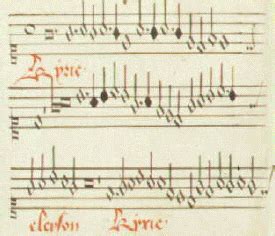 Kyrie
eleyson Kyrie